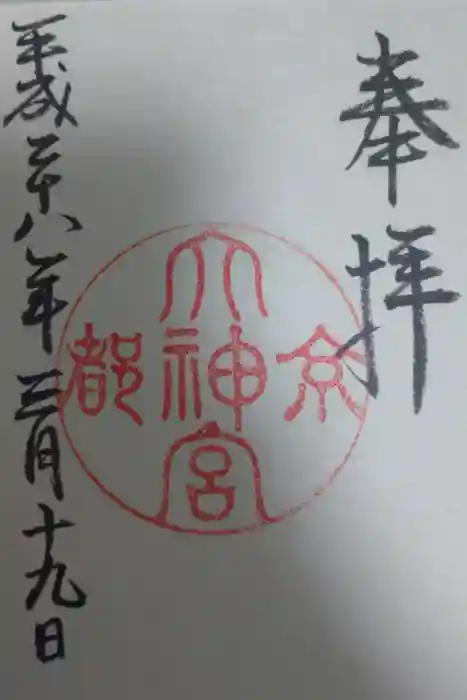 奉拝
京都
大神宮
平成二十八年三月十九日